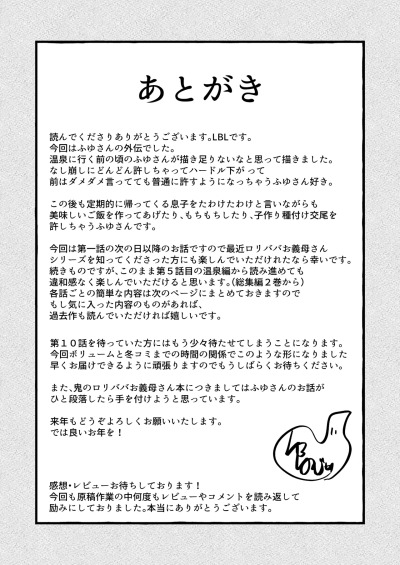 あとがき
読んでくださりありがとうございます。LBLです。
今回はふゆさんの外伝でした。
温泉に行く前の頃のふゆさんが描き足りないなと思って描きました。
なし崩しにどんどん許しちゃってハードル下がって
前はダメダメ言ってても普通に許すようになっちゃうふゆさん好き。
この後も定期的に帰ってくる息子をたわけたわけと言いながらも
美味しいご飯を作ってあげたり、もちもちしたり、子作り種付け交尾を
許しちゃうふゆさんです。
今回は第一話の次の日以降のお話ですので最近ロリババお義母さん
シリーズを知ってくださった方にも楽しんでいただけれたなら幸いです。
続きものですが、このまま第５話目の温泉編から読み進めても
違和感なく楽しんでいただけると思います。（総集編２巻から）
各話ごとの簡単な内容は次のページにまとめておきますので
もし気に入った内容のものがあれば、
過去作も読んでいただければ嬉しいです。
第１０話を待っていた方にはもう少々待たせてしまうことになります。
今回ボリュームと冬コミまでの時間の関係でこのような形になりました
早くお届けできるように頑張りますのでもうしばらくお待ちください。
また、鬼のロリババお義母さん本につきましてはふゆさんのお話が
ひと段落したら手を付けようと思っています。
来年もどうぞよろしくお願いいたします。
では良いお年を！
感想・レビューお待ちしております！
今回も原稿作業の中何度もレビューやコメントを読み返して
励みにしておりました。本当にありがとうございます。